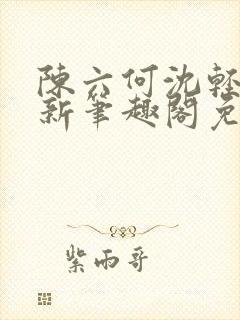 陳六何沈輕
新筆趣閣免
紫雨哥